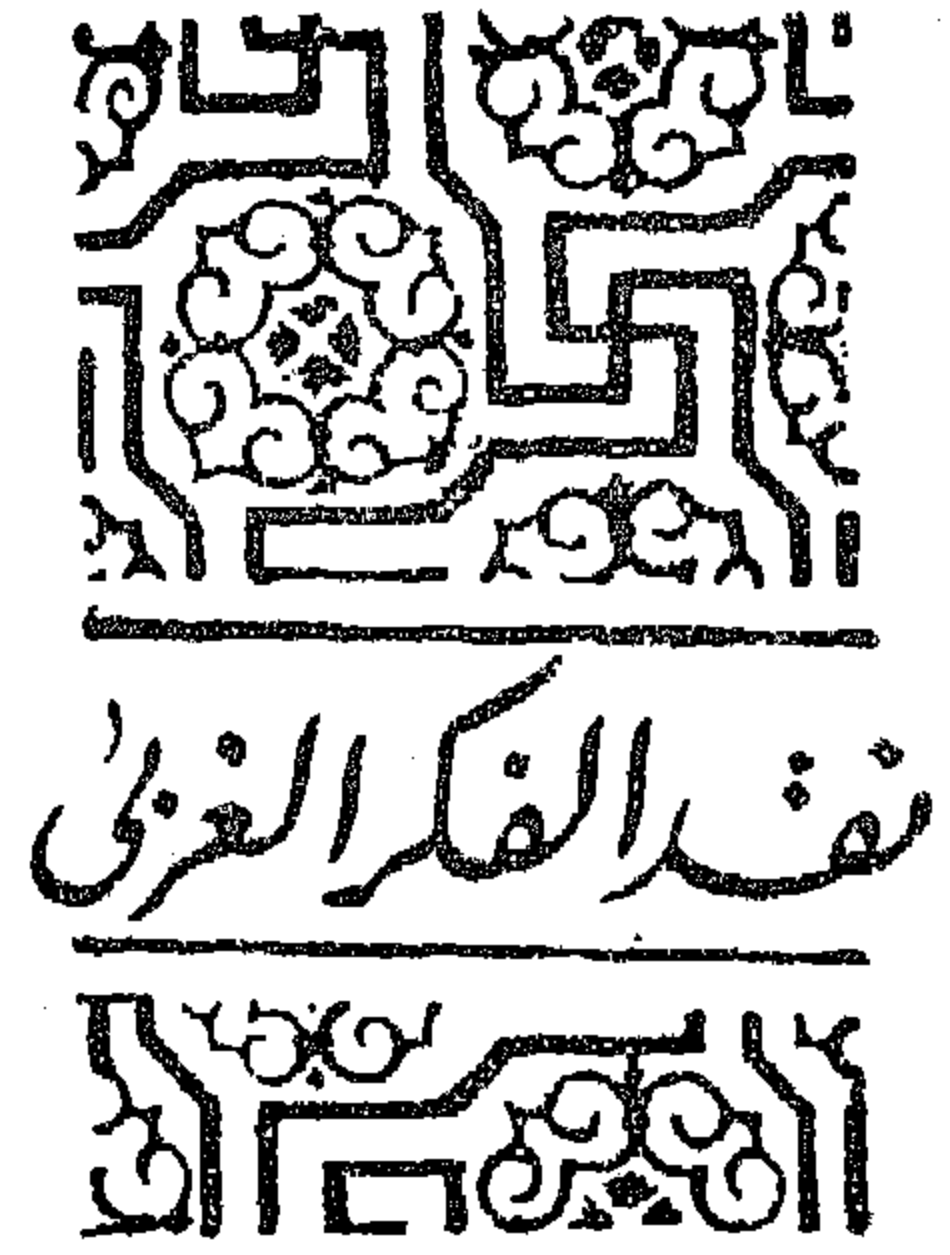 نقد الفكر الغربي